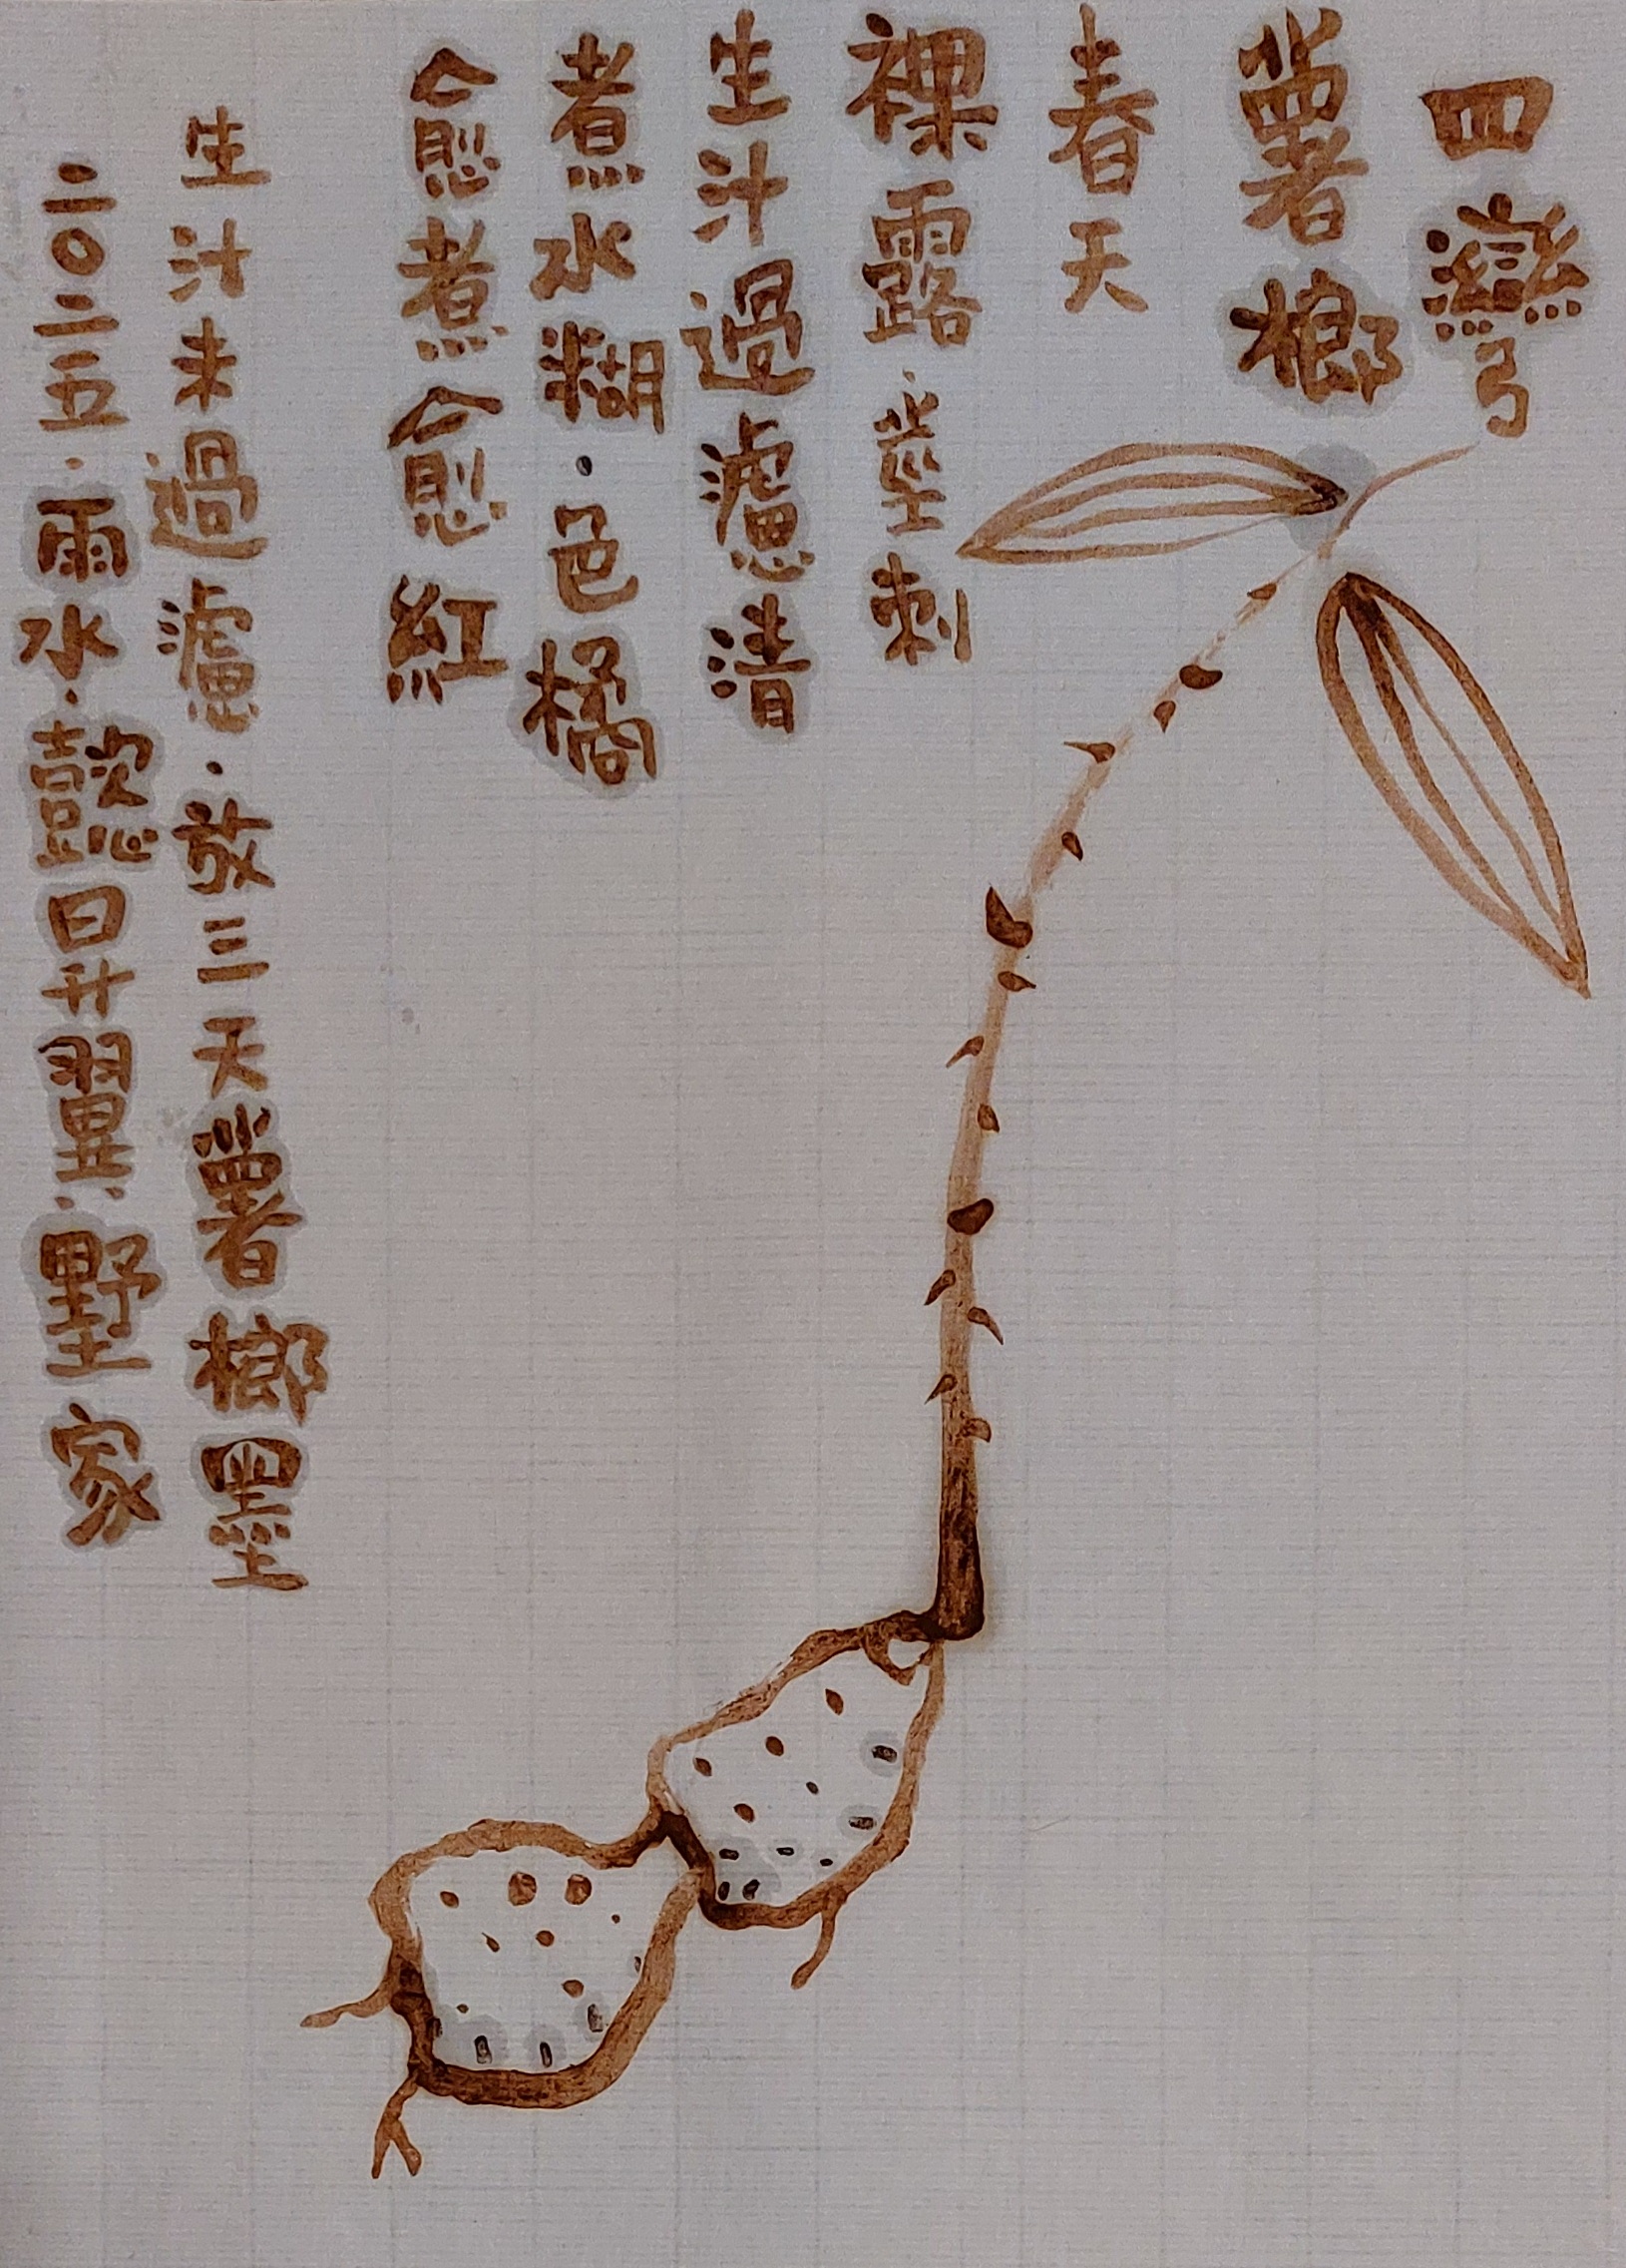 四灣
薯榔
春天
裸露·莖刺
生汁過濾清
煮水糊·色橘
愈煮愈紅
生汁未過濾·放三天薯榔墨
二〇二五·雨水·懿日昇翼·墅家